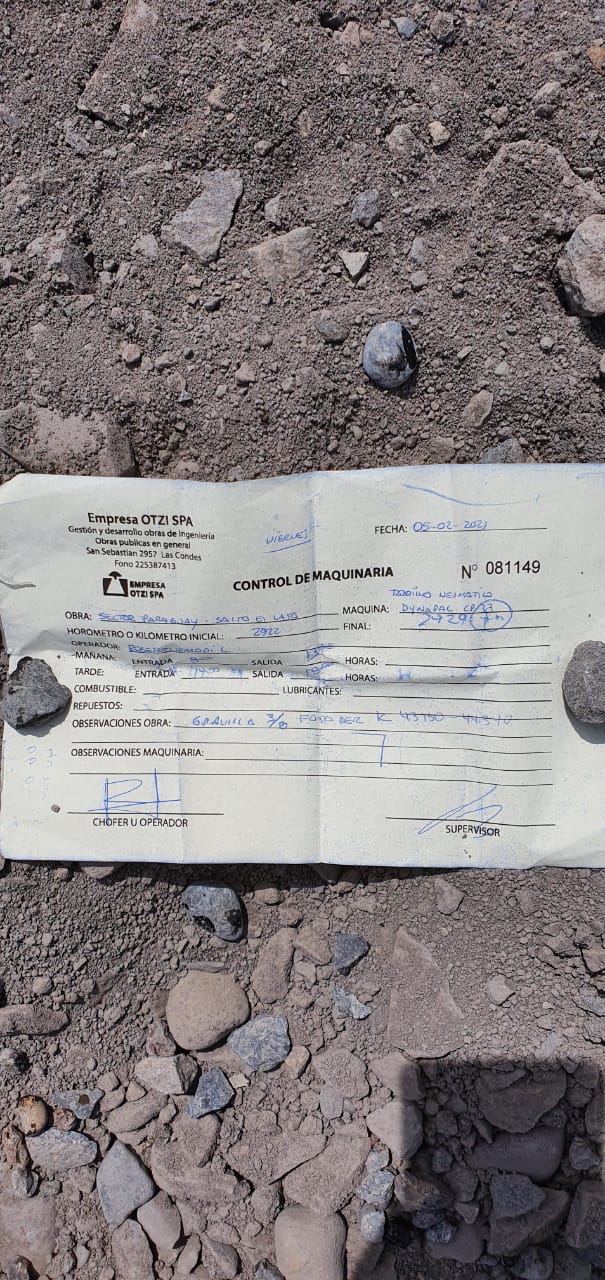 Empresa OTZI SPA
Gestión y desarrollo obras de Ingeniería
Obras publicas en general
San Sebastian 2957 Las Condes
Fono 225387413
EMPRESA
OTZI SPA
VIERNES
FECHA: 05-02-2021
CONTROL DE MAQUINARIA
N° 081149
RODILLO NEUMATICO
OBRA: SECTOR PARAGUAY - SALTO EL
MAQUINA: DYNAPAC CP/27
HOROMETRO O KILOMETRO INICIAL: 2922
FINAL: 2929
OPERADOR:
MAÑANA: ENTRADA SALIDA HORAS:
TARDE: ENTRADA SALIDA HORAS:
COMBUSTIBLE: LUBRICANTES:
REPUESTOS:
OBSERVACIONES OBRA: GRAVILLA 3/8 K 43150 -
OBSERVACIONES MAQUINARIA:
CHOFER U OPERADOR
SUPERVISOR